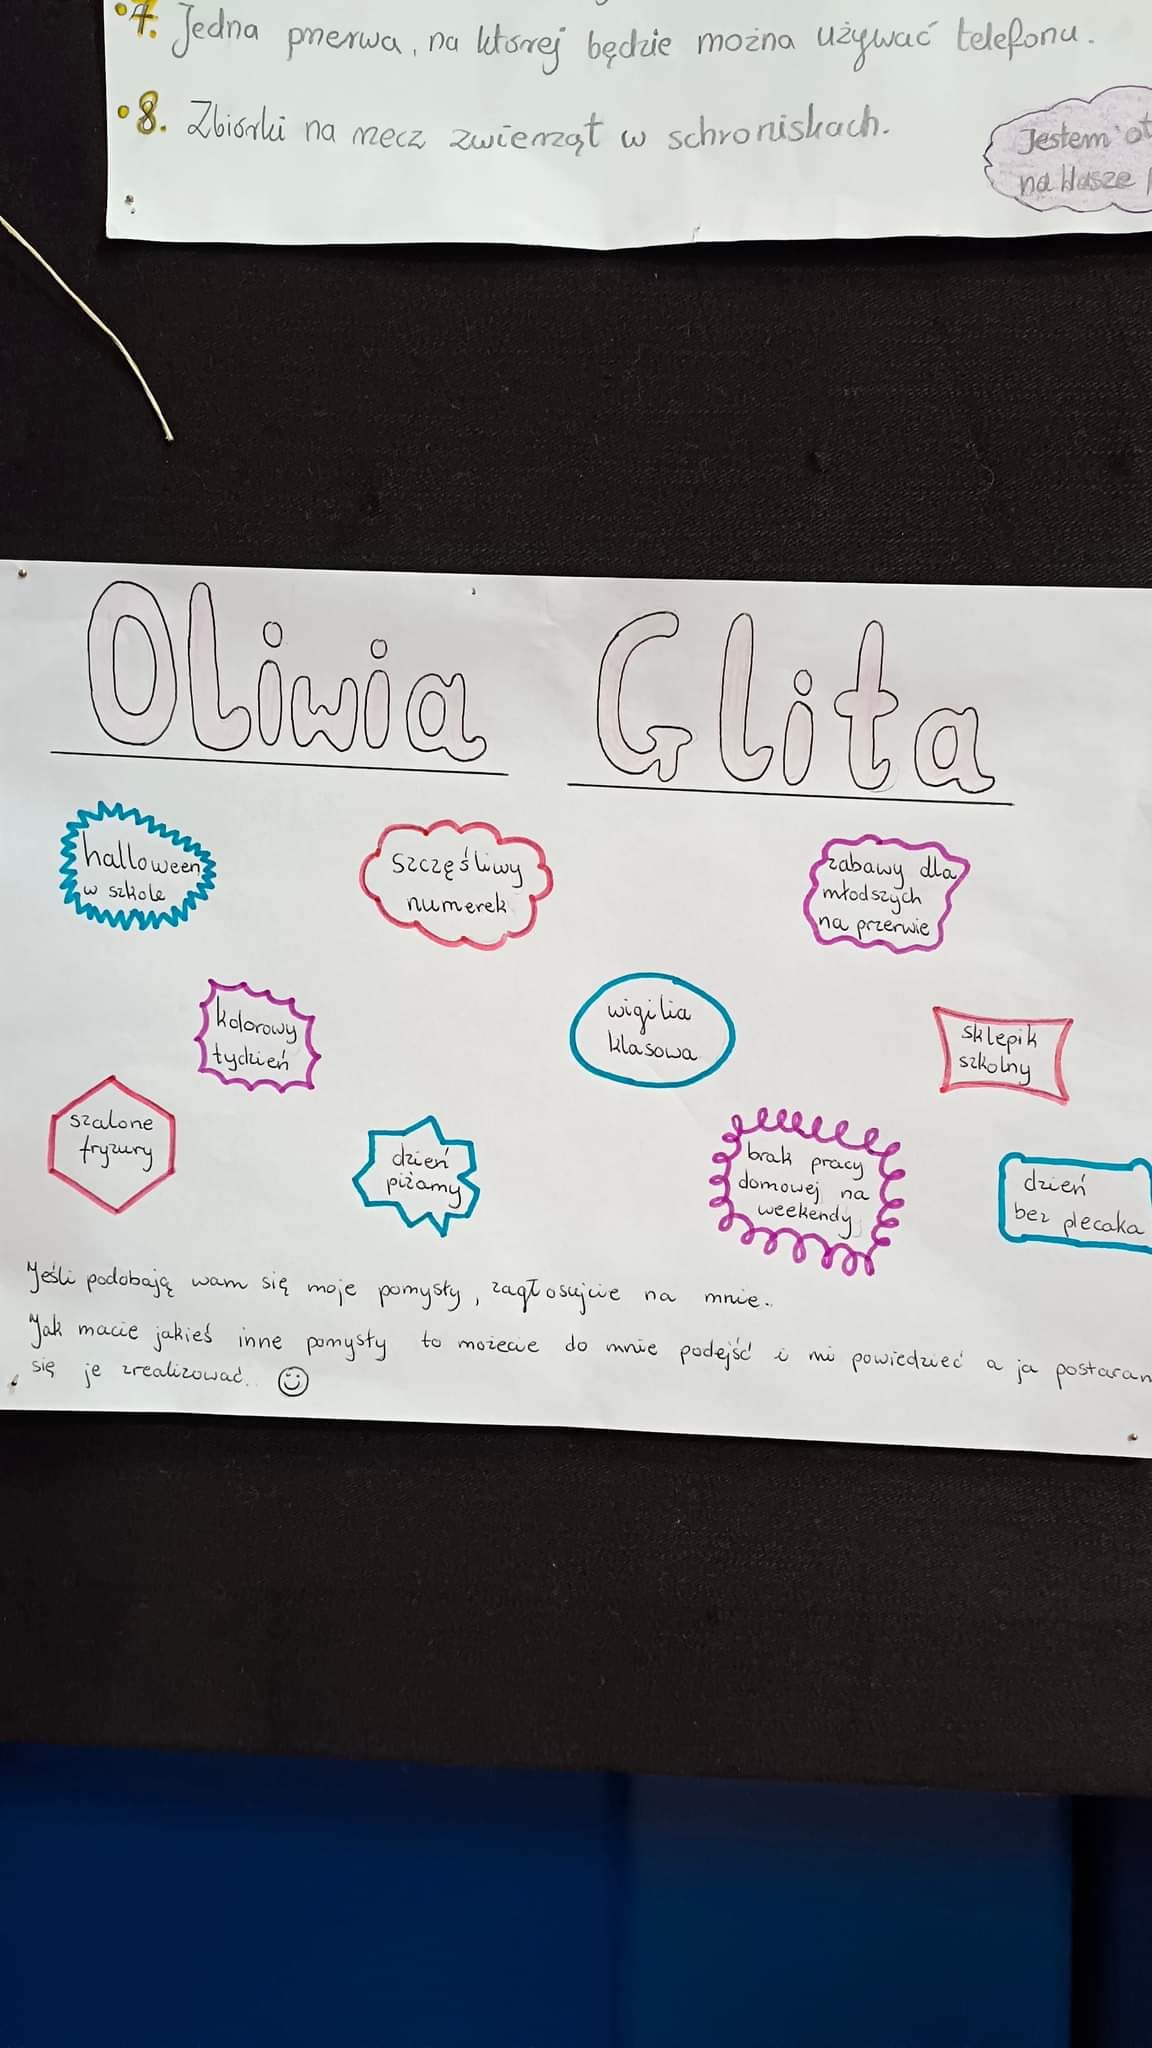 7. Jedna przerwa, na której będzie można używać telefonu.
8. Zbiórki na rzecz zwierząt w schroniskach.
Jestem
na Wasze
Oliwia Glita
halloween
w szkole
szczęśliwy
numerek
zabawy dla
młodszych
na przerwie
kolorowy
tydzień
wigilia
klasowa
sklepik
szkolny
szalone
fryzury
dzień
piżamy
brak pracy
domowej na
weekendy
dzień
bez plecaka
Jeśli podobają wam się moje pomysły, zagłosujcie na mnie.
Jak macie jakieś inne pomysły to możecie do mnie podejść i mi powiedzieć a ja postaram
się je zrealizować.